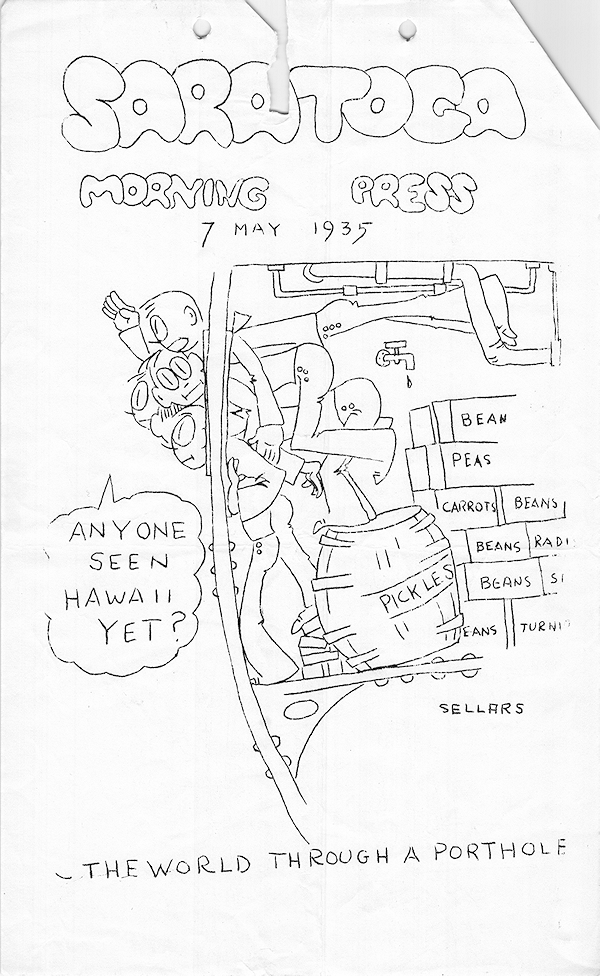 SARATOGA
MORNING PRESS
7 MAY 1935
BEAN
PEAS
CARROTS BEANS
BEANS RADI
BEANS
PICKLES
EANS TURNI
ANYONE
SEEN
HAWAII
YET?
SELLARS
~ THE WORLD THROUGH A PORTHOLE